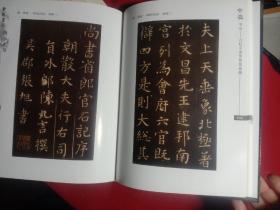 夫上天垂象北極著
於文昌先王建邦南
宮列為會府六官既
辟四方是則大總
尚書省郎官石記序
朝散大夫行右司
員外郎陳九言撰
吳郡張旭書